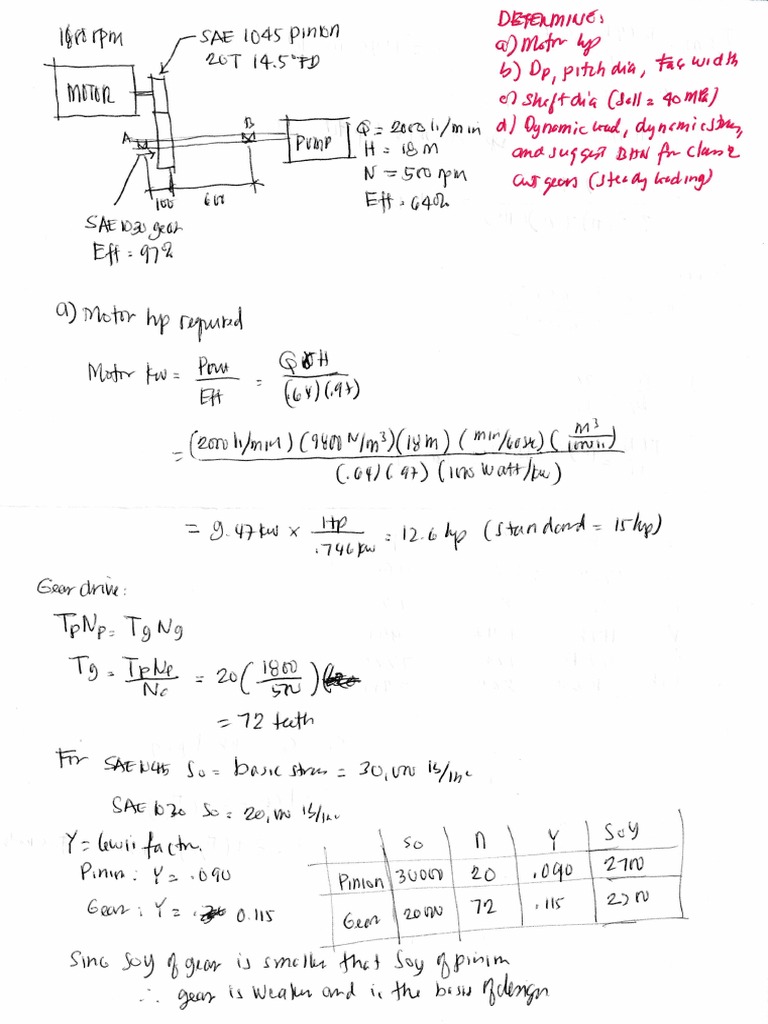 1800 rpm
MOTOR
SAE 1045 Pinion
20T 14.5° FD
A
B
PUMP
Q = 2000 li/min
H = 18 m
N = 500 rpm
Eff = 64%
100
600
SAE 1030 gear
Eff = 97%
DETERMINE:
a) Motor hp
b) Dp, pitch dia, face width
c) Shaft dia (Sall = 40 MPa)
d) Dynamic load, dynamic stress,
and suggest BHN for class 2
cut gears (steady loading)
a) Motor hp required
Motor kw = Pout / Eff = QγH / (.64)(.97)
= (2000 li/min)(9800 N/m³)(18 m)(min/60sec)(m³/1000 li) / (.64)(.97)(1000 watt/kw)
= 9.47 kw × Hp/.746 kw = 12.6 hp (standard = 15 hp)
Gear drive:
TpNp = TgNg
Tg = TpNp / NG = 20 (1800 / 500)
= 72 teeth
For SAE 1045 So = basic stress = 30,000 lb/in²
SAE 1030 So = 20,000 lb/in²
Y = Lewis factor
Pinion: Y = .090
Gear: Y = 0.115
So n Y SoY
Pinion 30000 20 .090 2700
Gear 20000 72 .115 2300
Since SoY of gear is smaller that SoY of pinion
∴ gear is weaker and is the basis of design